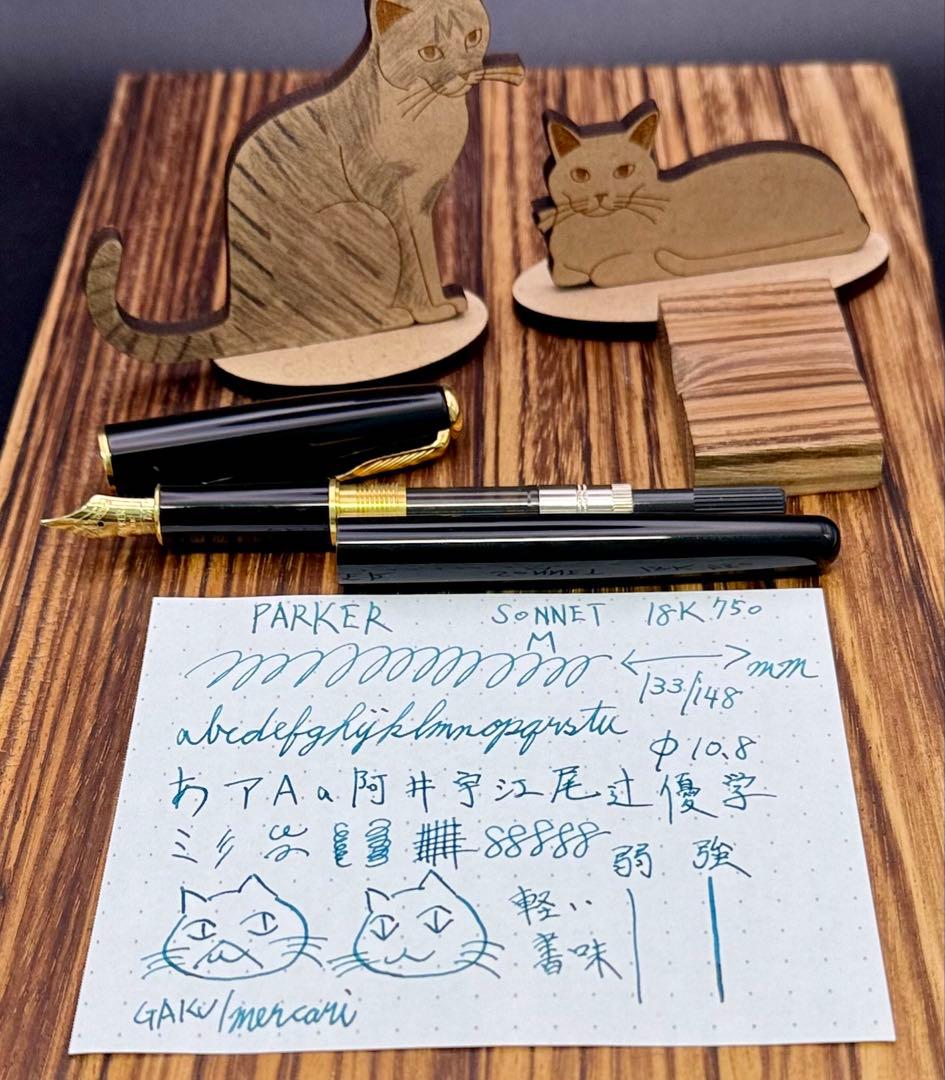 PARKER SONNET 18K 750
M
mm
133/148
abcdefghijklmnopqrstu
φ 10.8
あ ア A a 阿 井 宇 江 尾 辻 優 学
ミ 彡
88888
弱 強
軽い
書味
GAKU/mercari